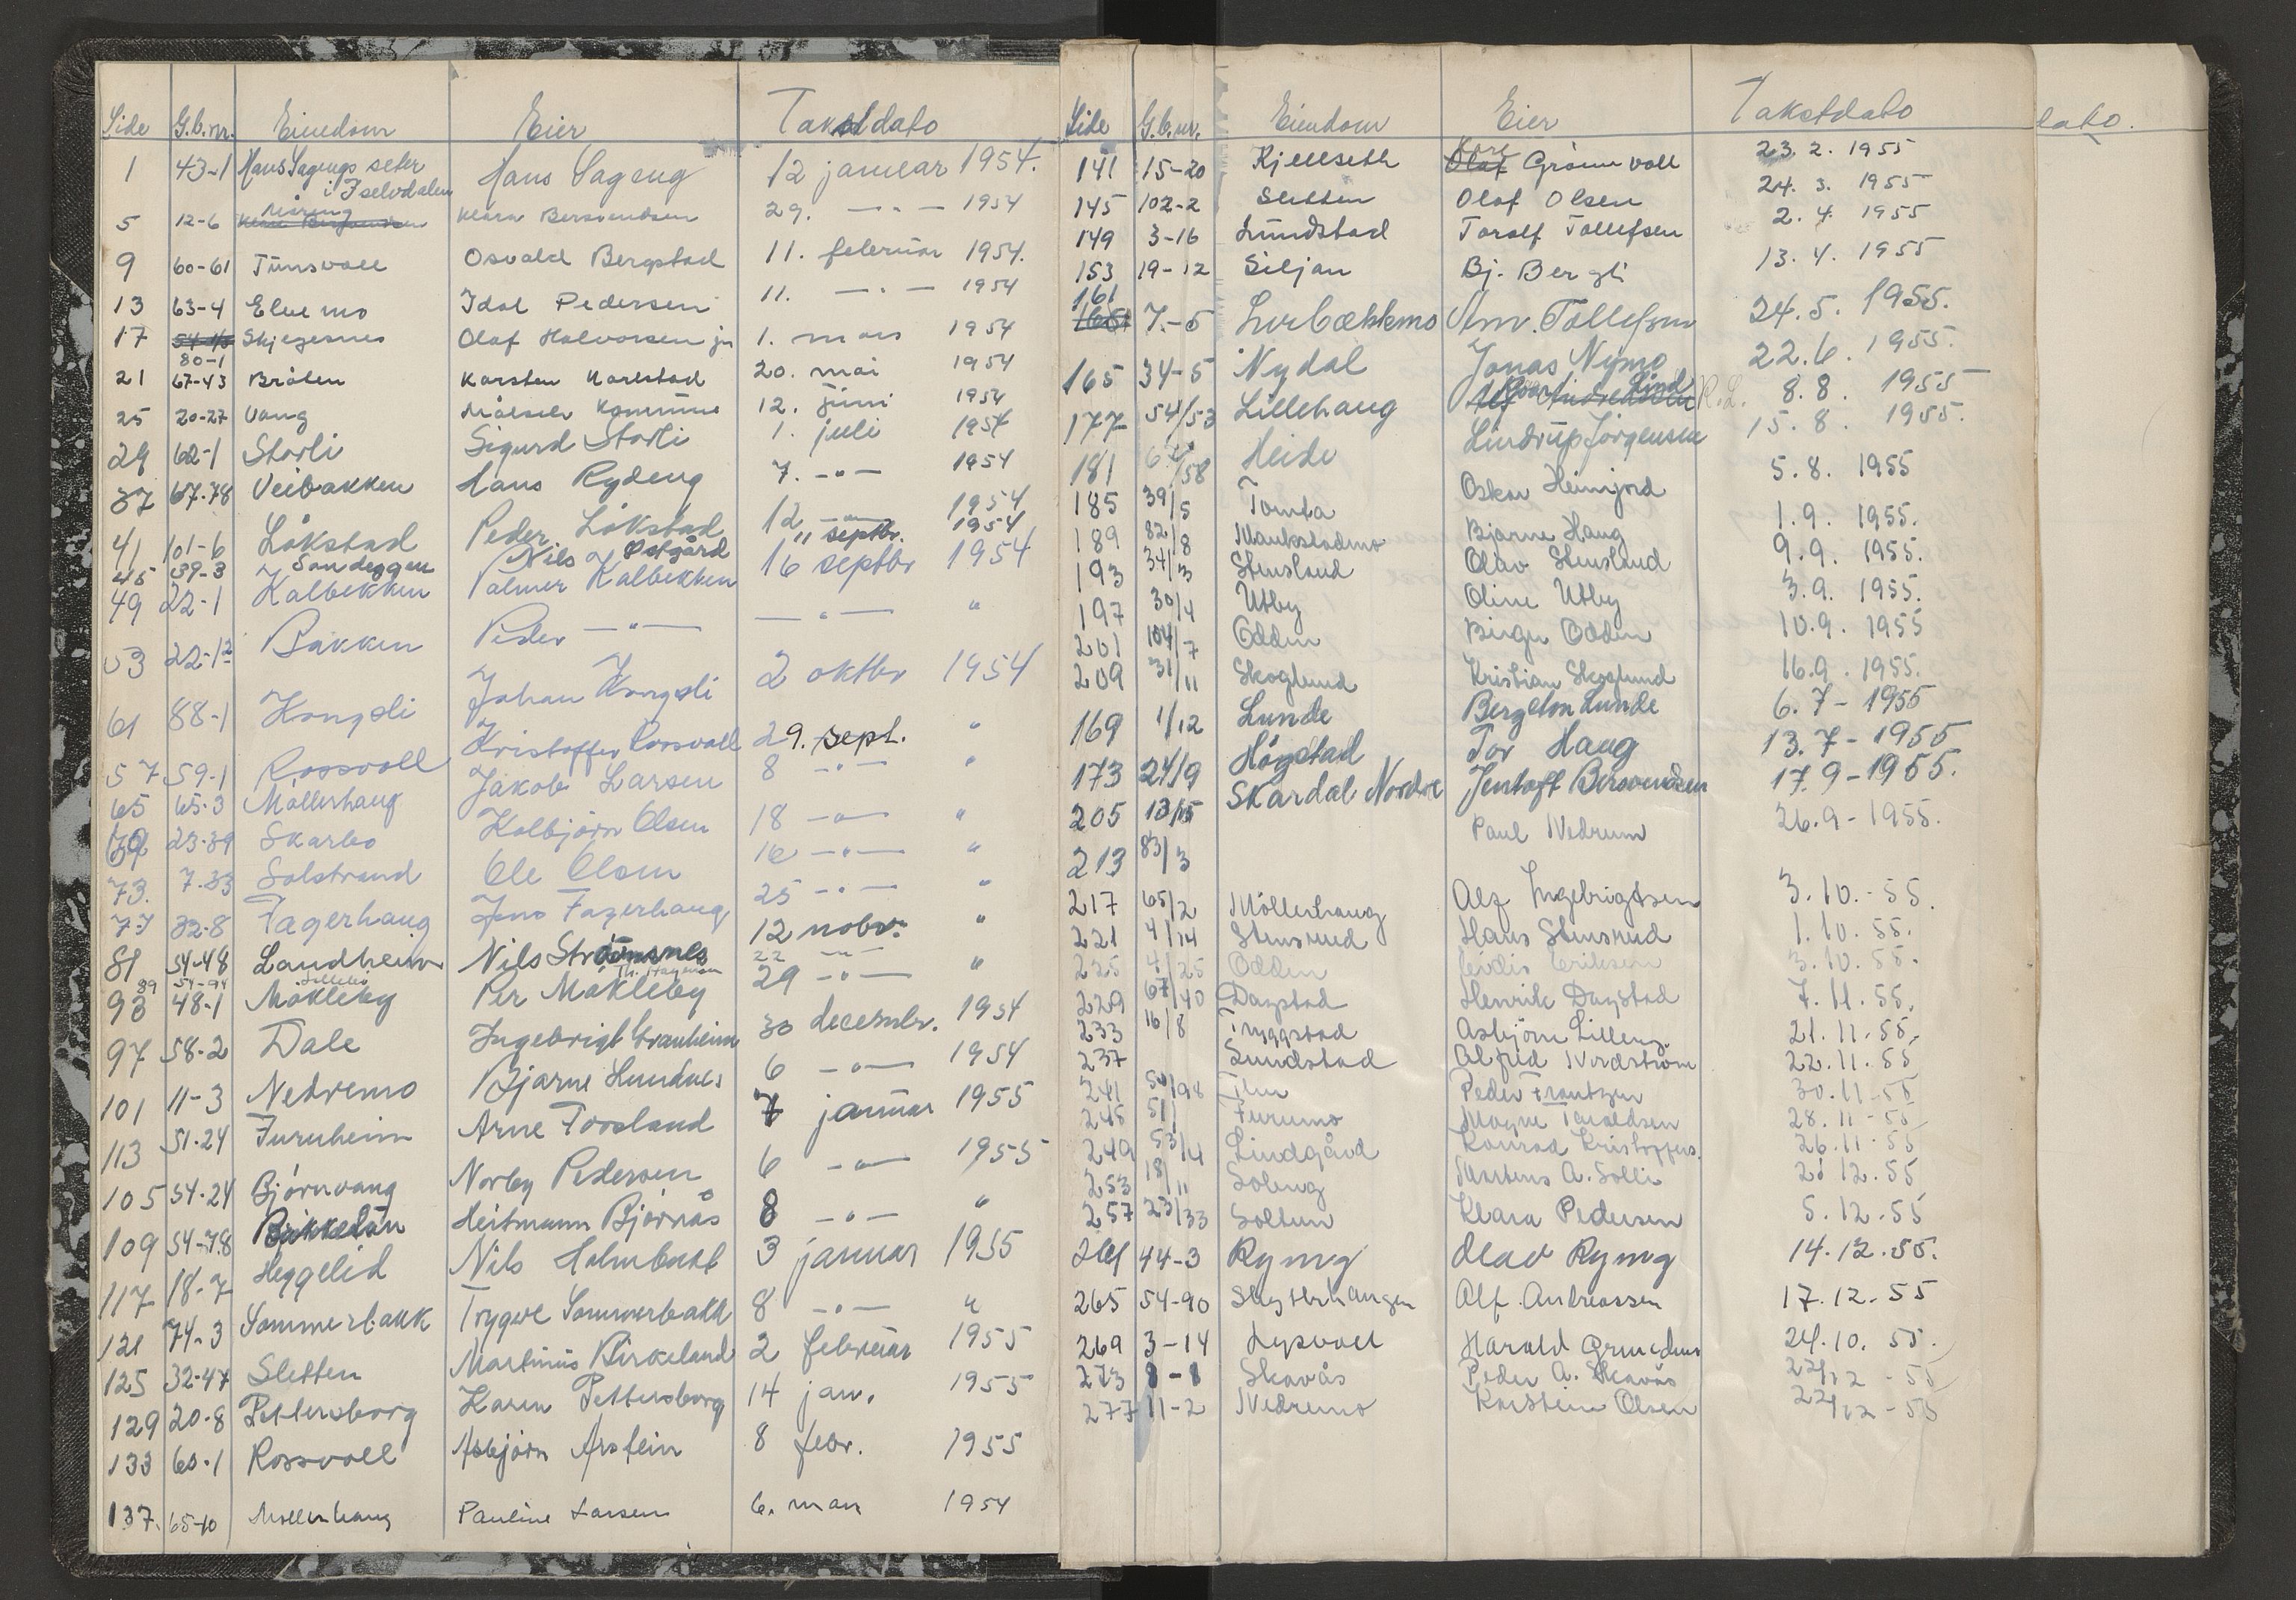 Side G.b.nr. Eiendom Eier Takstdato
1 43-1 Hans Sagengs seter Hans Sageng 12 januar 1954.
i Iselvdalen
5 12-6 Klara Bersvendsen 29. —"— 1954
9 60-61 Tunsvoll Osvald Bergstad 11. februar 1954.
13 63-4 Elvemo Idal Pedersen 11. —"— 1954
17 Skjeggesnes Olaf Halvorsen jr 1. mars 1954
80-1
21 67-43 Bråten Karsten Karlstad 20. mai 1954
25 20-27 Vang Målselv Kommune 12. juni 1954
29 62-1 Storli Sigurd Storli 1. juli 1954
37 67-78 Veibakken Hans Rydeng 7. —"— 1954
41 101-6 Løkstad Peder Løkstad 12 —"— 1954
45 39-3 Sandeggen Nils Østgård " septbr. 1954
49 22-1 Kalbekken Palmer Kalbekken 16 septbr 1954
53 22-12 Bakken Peder —"— —"— "
61 88-1 Kongsli Johan Kongsli 2 oktbr 1954
57 59-1 Rossvoll Kristoffer Rossvoll 29. sept. "
65 65-3 Møllerhaug Jakob Larsen 8 —"— "
69 23-39 Skarbo Kolbjørn Olsen 18 —"— "
73. 7-33 Solstrand Ole Olsen 16 —"— "
77 32-8 Fagerhaug Jens Fagerhaug 25 —"— "
81 54-48 Landheim Nils Strømsnes 12 nobr. "
89 54-94 Lillebo Th. Hagman 22 —"—
93 48-1 Møkleby Per Møkleby 29 —"— "
97 58-2 Dale Ingebrigt Granheim 30 decembr. 1954
101 11-3 Nedremo Bjarne Hundnes 6 —"— 1954
113 51-24 Furuheim Arne Fosland 7 januar 1955
105 54-24 Bjørnvang Norby Pedersen 6 —"— 1955
109 54-78 Birkelan Heitmann Bjørnås 8 —"— "
117 18-7 Heggelid Nils Holmbakk 3 januar 1955
121 74-3 Sommerbakk Trygve Sommerbakk 8 —"— "
125 32-47 Sletten Martinus Kirkeland 2 februar 1955
129 20-8 Pettersborg Karen Pettersborg 14 jan. 1955
133 60-1 Rossvoll Asbjørn Arstein 8 febr. 1955
137. 65-10 Møllerhaug Pauline Larsen 6. mars 1954
Side G.b.nr. Eiendom Eier Takstdato
Kåre
141 15-20 Kjellseth Olaf Grønnvoll 23. 2. 1955
145 102-2 Sletten Olaf Olsen 24. 3. 1955
149 3-16 Lundstad Toralf Tollefsen 2. 4. 1955
153 19-12 Siljan Bj. Bergli 13. 4. 1955
161 7-5 Lurbækkmo Am. Tollefsen 24. 5. 1955.
165 34-5 Nydal Jonas Nymo 22. 6. 1955.
177 54/53 Lillehaug Lind R.L. 8. 8. 1955
181 /58 Heide Lindrup Jørgensen 15. 8. 1955.
185 39/5 Tomta Oskar Heimjord 5. 8. 1955
189 82/8 Maukstadmo Bjarne Haug 1. 9. 1955.
193 34/3 Stensland Olav Stensland 9. 9. 1955.
197 30/4 Utby Oline Utby 3. 9. 1955.
201 104/7 Odden Birger Odden 10. 9. 1955
209 31/11 Skoglund Kristian Skoglund 16. 9. 1955.
169 1/12 Lunde Bergeton Lunde 6. 7 - 1955
173 24/9 Høgstad Tor Haug 13. 7 - 1955
205 13/15 Skardal Nordre Jentoft Bersvendsen 17. 9 - 1955.
213 83/3 Paul Nedrum 26. 9 - 1955.
217 65/2 Møllerhaug Alf Ingebrigtsen 3. 10. - 55.
221 4/14 Stensrud Hans Stensrud 1. 10. 55.
225 4/25 Odden Eidis Eriksen 3. 10. 55.
229 67/40 Dagstad Henrik Dagstad 7. 11. 55.
233 16/8 Tryggstad Asbjørn Lilleng. 21. 11. 55.
237 Sundstad Alfred Nordstrøm 22. 11. 55
241 54/98 Peder Frantzen 30. 11 - 55
245 51/ Furumo Magne Taraldsen 28. 11 - 55
249 53/14 Lindgård Konrad Kristoffers. 26. 11 - 55
253 18/11 Soleng Martens A. Solli 21 12. 55
257 23/33 Soltun Klara Pedersen 5. 12. 55
261 44-3 Ryeng Olav Ryeng 14. 12. 55.
265 54-90 Skytterhaugen Alf Andreassen 17. 12. 55
269 3-14 Lysvoll Harald Grundnes 24. 10. 55.
273 8-8 Skavås Peder A. Skavås 22/12 - 55
277 11-2 Nedremo Karstein Olsen 22/12 - 55
dato.